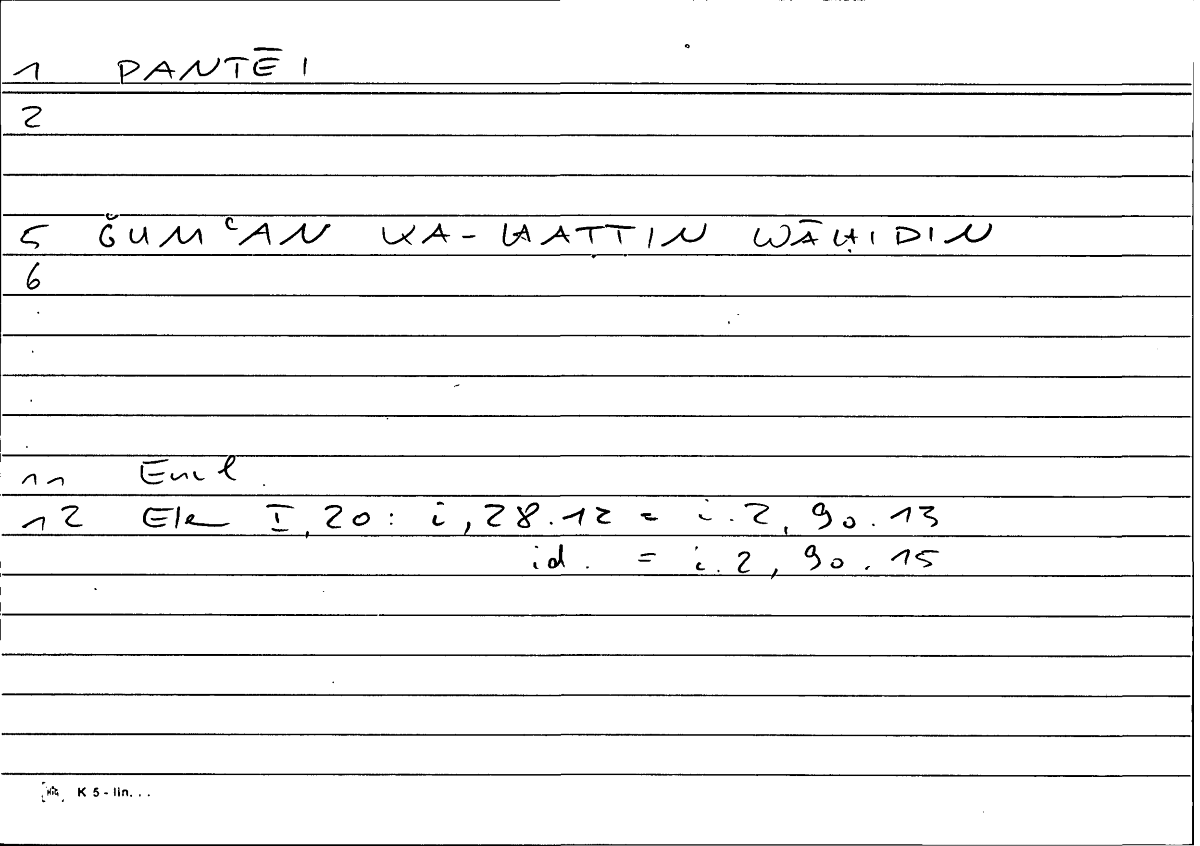 1 PANTĒI
2
5 ǦUMʿAN KA-ḪAṬṬIN WĀḤIDIN
6
11 Eucl.
12 Ele I,20: i,28.12 = i.2, 90.13
id. = i.2, 90.15
K 5 - lin. . .